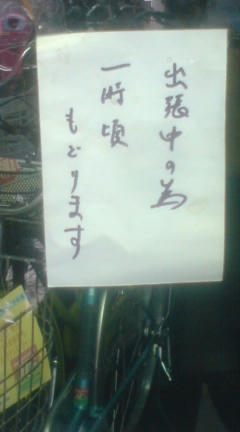 出張中の為
一時頃
もどります